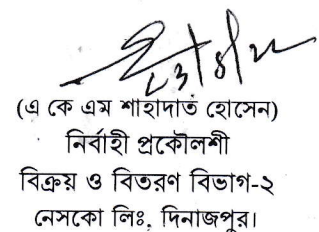 (এ কে এম শাহাদাত হোসেন)
নির্বাহী প্রকৌশলী
বিক্রয় ও বিতরণ বিভাগ-২
নেসকো লিঃ, দিনাজপুর।